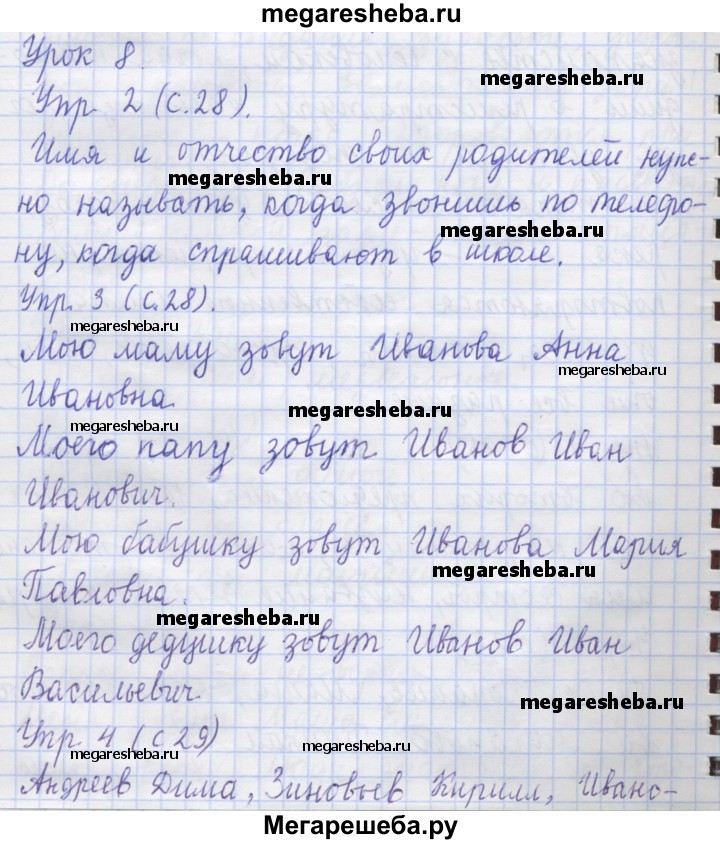 megaresheba.ru
Урок 8.
megaresheba.ru
Упр. 2 (с.28).
Имя и отчество своих родителей нуж-
megaresheba.ru
но называть, когда звонишь по телефо-
megaresheba.ru
ну, когда спрашивают в школе.
Упр. 3 (с.28).
megaresheba.ru
Мою маму зовут Иванова Анна
megaresheba.ru
Ивановна
megaresheba.ru
Моего папу зовут Иванов Иван
Иванович.
Мою бабушку зовут Иванова Мария
megaresheba.ru
Павловна.
megaresheba.ru
Моего дедушку зовут Иванов Иван
Васильевич
megaresheba.ru
Упр. 4 (с 29)
megaresheba.ru
megaresheba.ru
Андреев Дима, Зиновьев Кирилл, Ивано-
Мегарешеба.ру